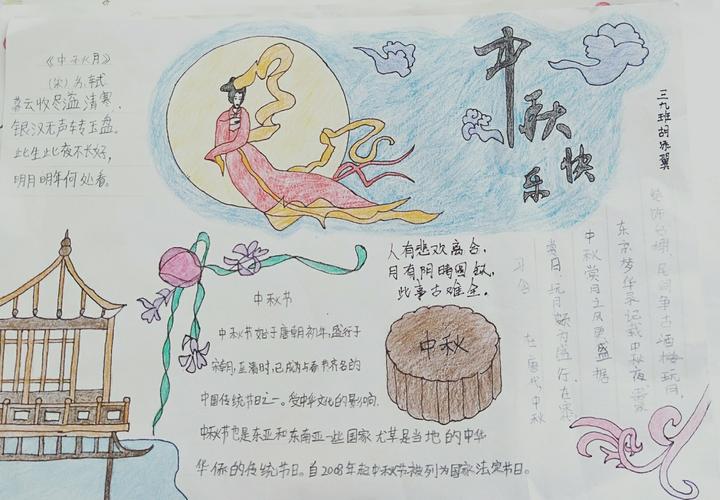 《中秋月》
(宋) 苏轼
暮云收尽溢清寒,
银汉无声转玉盘。
此生此夜不长好,
明月明年何处看。
中秋快乐
三九班胡
人有悲欢离合,
月有阴晴圆缺,
此事古难全。
中秋
中秋节
中秋节始于唐朝初年,盛行于
宋朝,至清时,已成为与春节齐名的
中国传统节日之一。受中华文化的影响,
中秋节也是东亚和东南亚一些国家尤其是当地的中华
华侨的传统节日。自2008年起中秋节被列为国家法定节日。
习俗
在唐代,中秋
赏月、玩月颇为盛行。在宋
中秋赏月之风更盛,据
东京梦华录记载中秋夜,贵家
结饰台榭,民间争占酒楼玩月